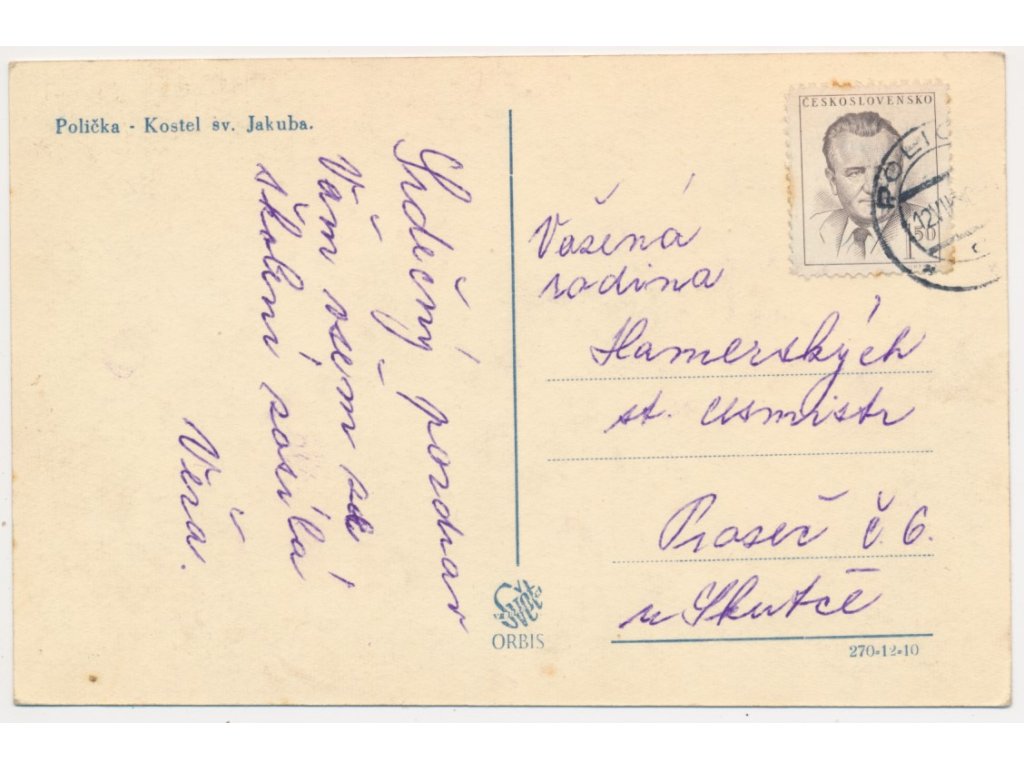 Polička - Kostel sv. Jakuba.
Srdečný pozdrav
Vám všem se
školení zasílá
Věra.
ČESKOSLOVENSKO
1 50
POLIČ
12.VII
Vážená
rodina
Hamerských
st. cesmistr
Proseč č. 6.
u Skutče
ORBIS
270-12-10